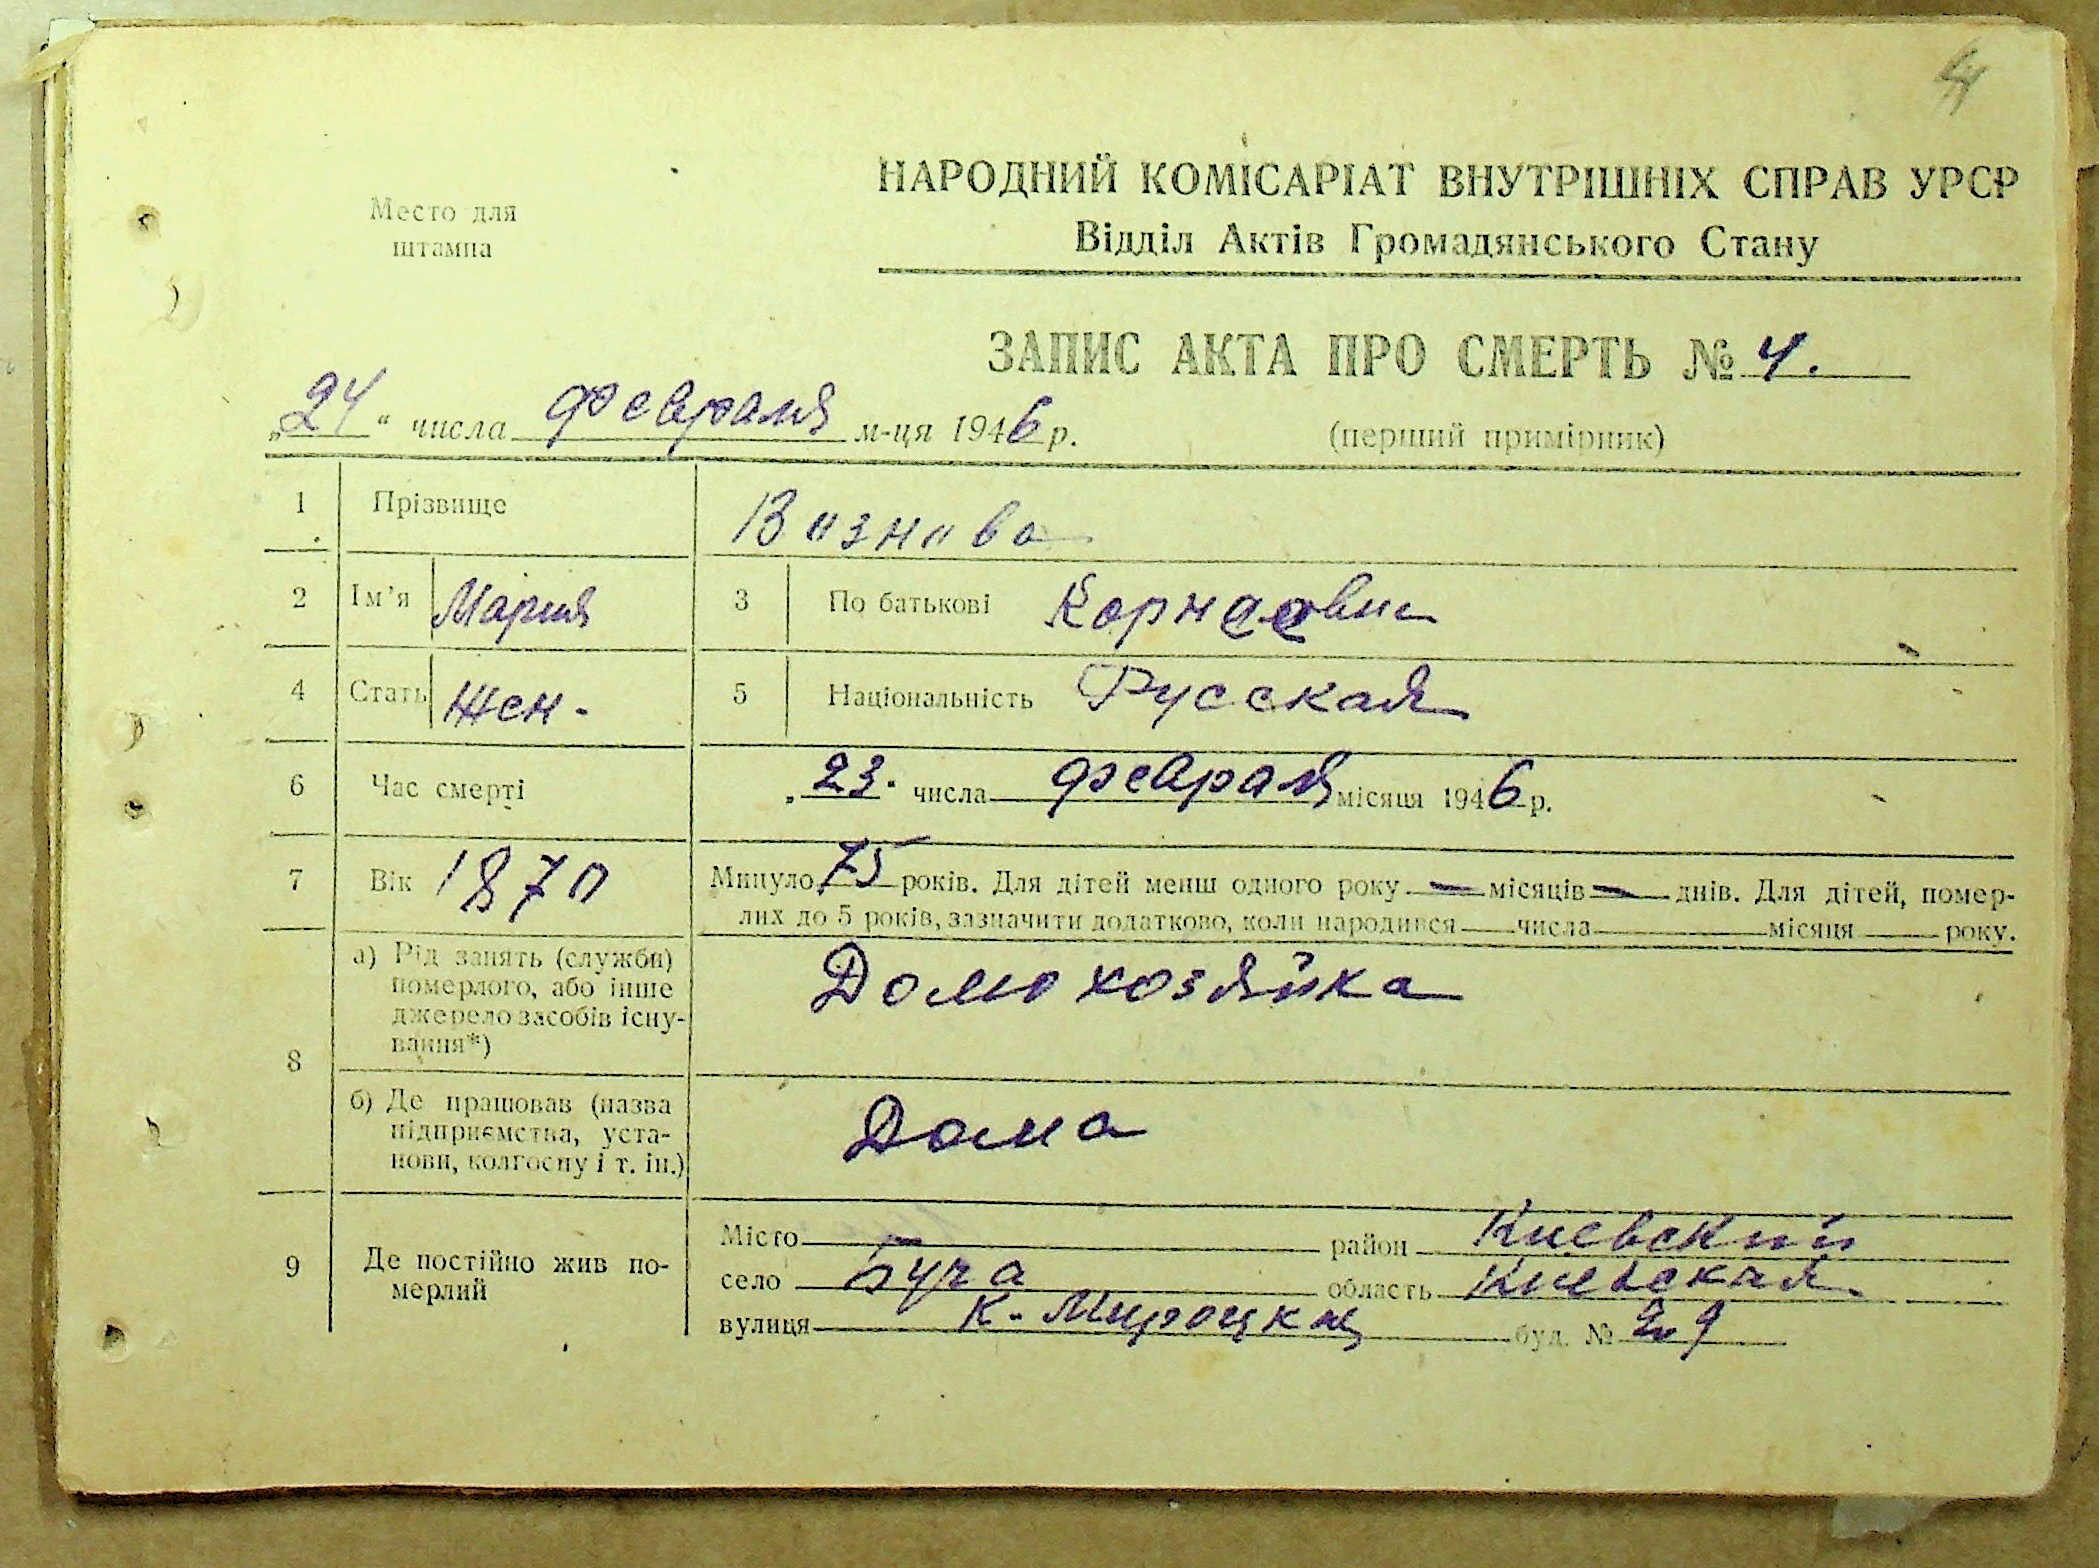 4
Место для
штампа
НАРОДНИЙ КОМІСАРІАТ ВНУТРІШНІХ СПРАВ УРСР
Відділ Актів Громадянського Стану
ЗАПИС АКТА ПРО СМЕРТЬ № 4.
„24“ числа февраля м-ця 1946 р.
(перший примірник)
1 Прізвище Вазнова
2 Ім'я Мария 3 По батькові
4 Стать Жен. 5 Національність Русская
6 Час смерті „23" числа февраля місяця 1946 р.
7 Вік 1870 Минуло 75 років. Для дітей менш одного року — місяців — днів. Для дітей, помер-
лих до 5 років, зазначити додатково, коли народився числа місяця року.
8 а) Рід занять (служби)
померлого, або інше
джерело засобів існу-
вання*)
Домохозяйка
б) Де працював (назва
підприємства, уста-
нови, колгоспу і т. ін.)
Дома
9 Де постійно жив по-
мерлий
Місто район Киевский
село Буча область Киевская
вулиця К. буд. №